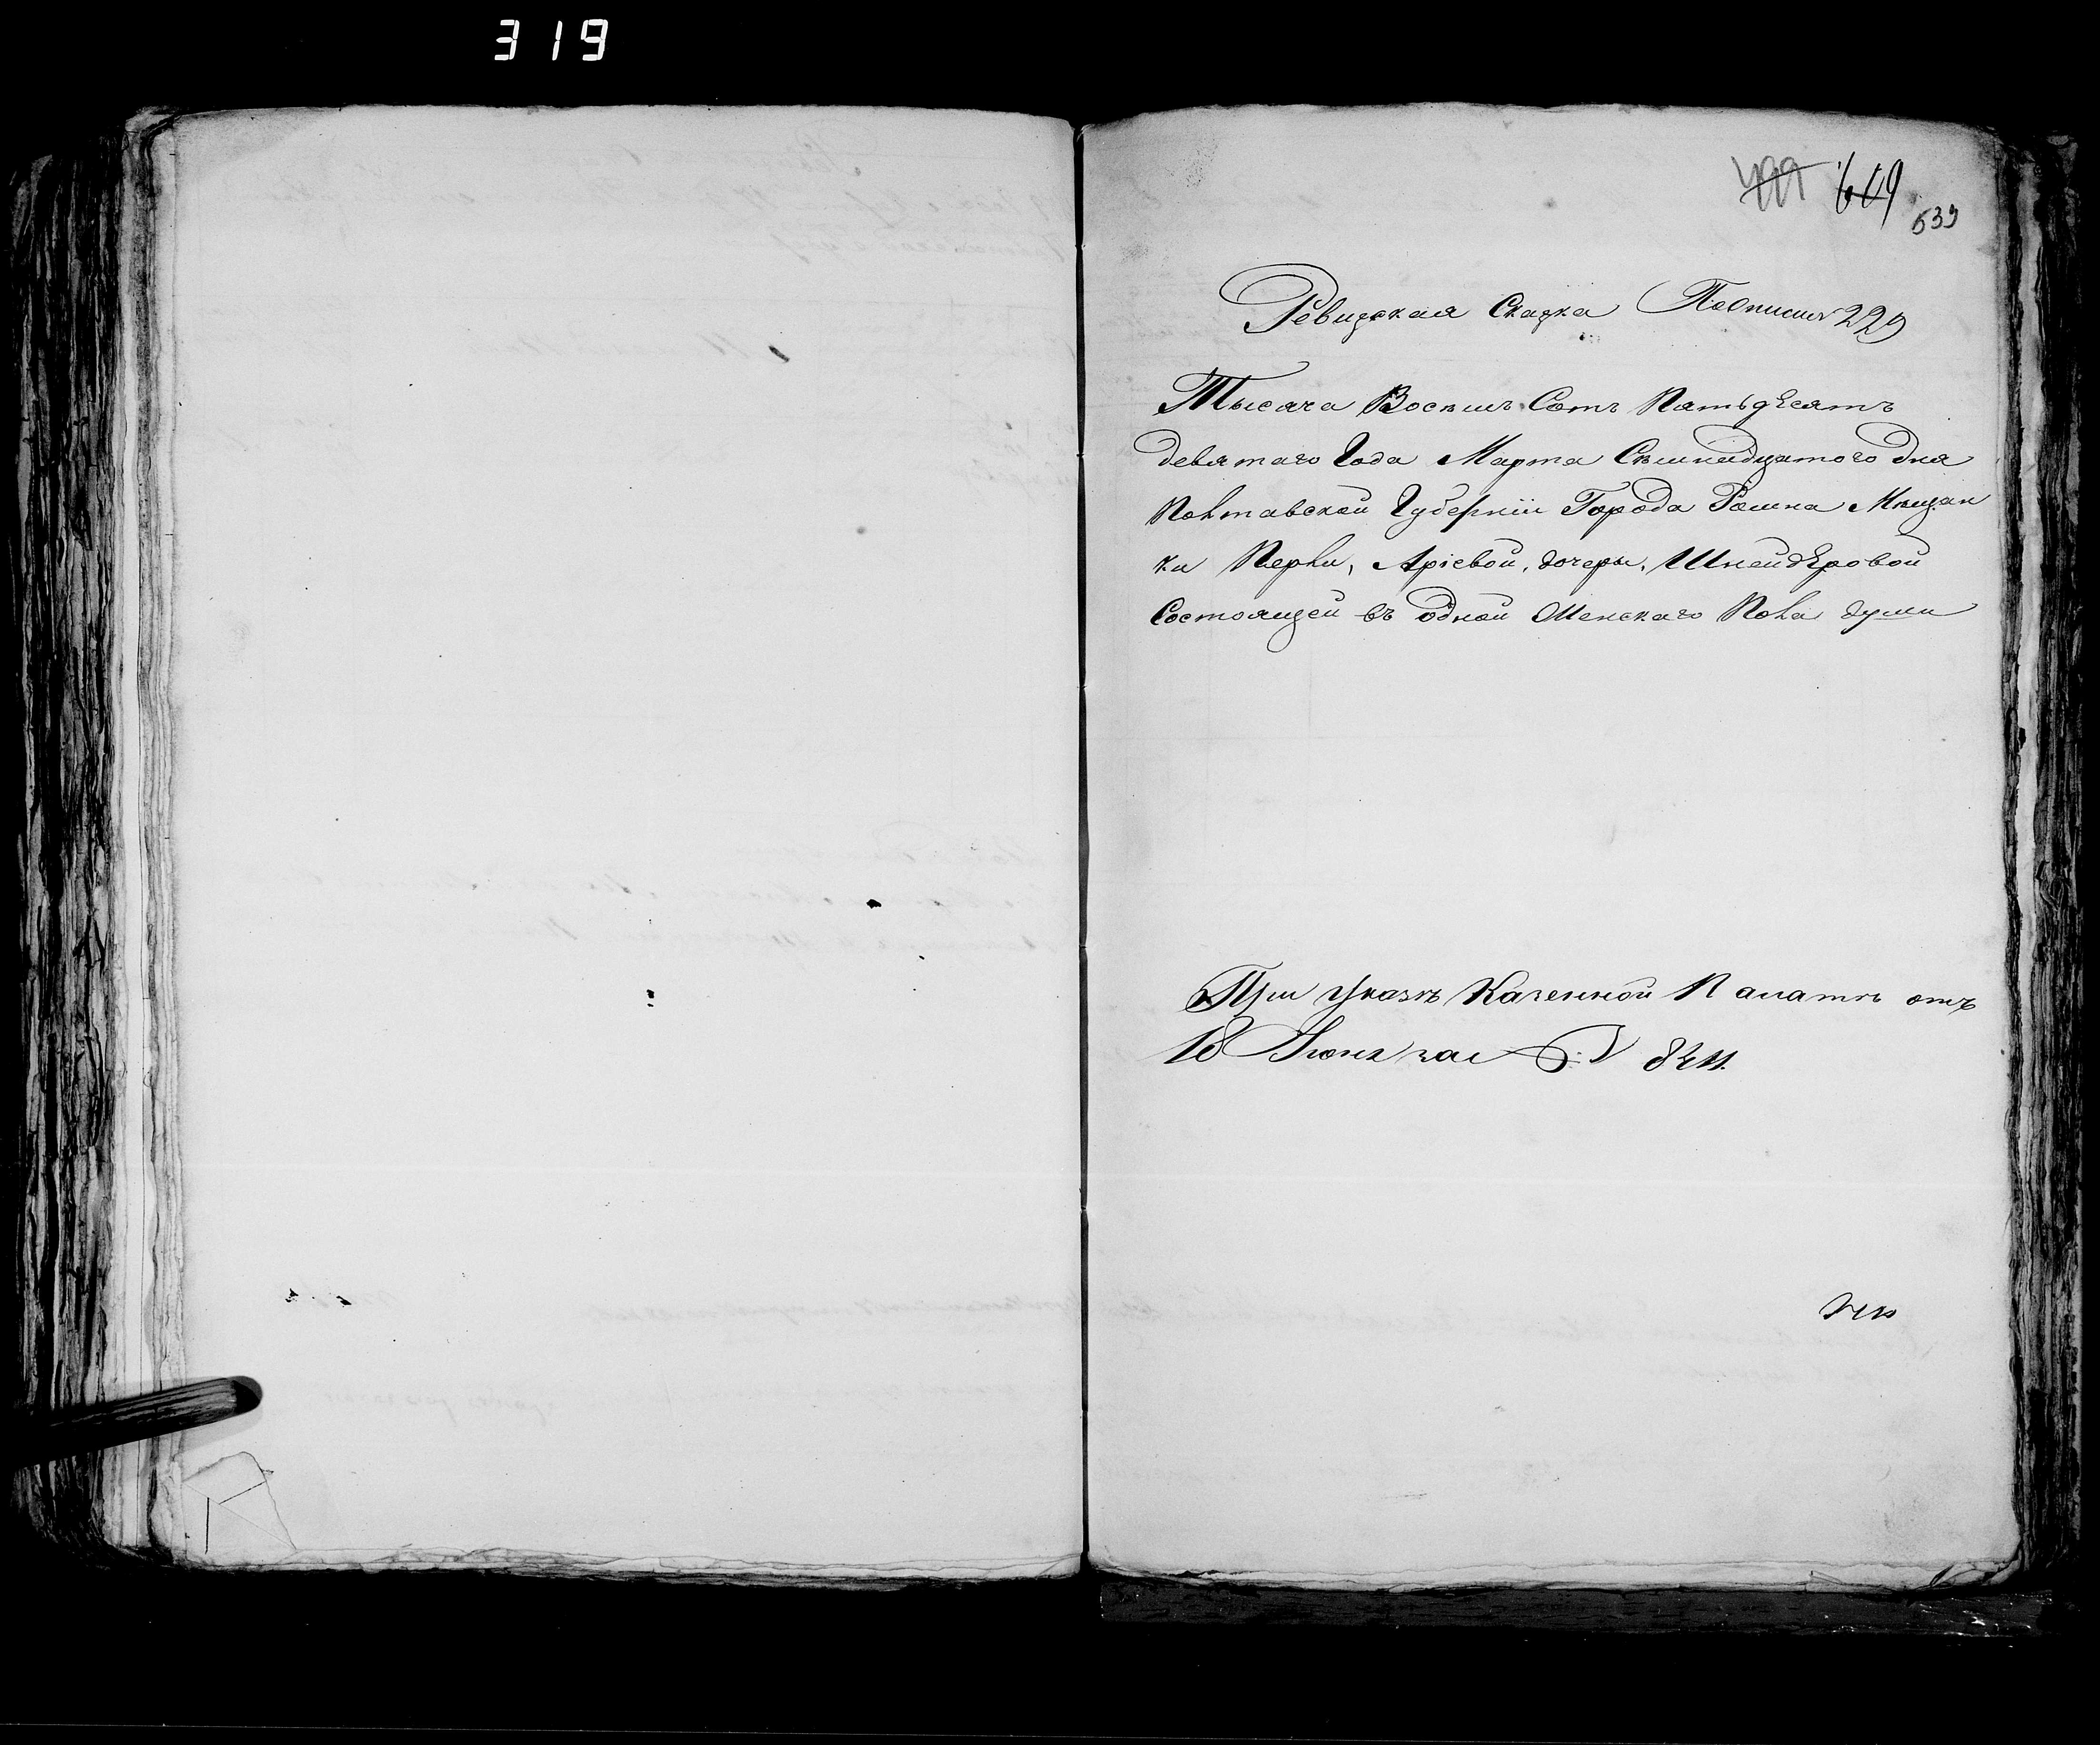 319
499 609
639
Ревизская Сказка По описи 229
Тысяча Восѣмъ Сотъ Пятьдесятъ
девятаго Года Марта Сѣмнадцатого дня
Полтавской Губерніи Города Ромна Мѣщан
ки Перли, Аріевой, дочеры, Шнейдеровой
Состоящей въ одной Женскаго Пола души
При Указѣ Казенной Палаты отъ
18 Іюня